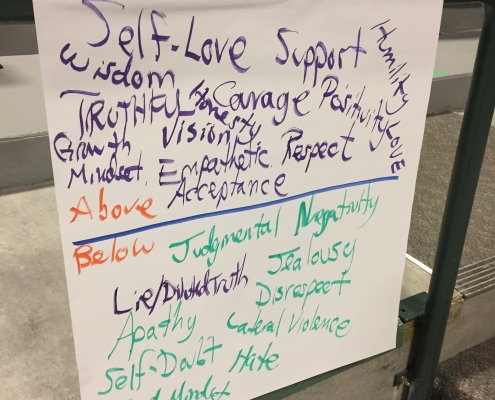 Self-Love Support
Humility
Wisdom
TRUTHFUL Honesty Courage Positivity LOVE
Growth Vision
Mindset. Empathetic. Respect
Acceptance
Above
Below Judgmental Negativity
Lie/Diluted Truth Jealousy
Disrespect
Apathy Lateral Violence
Self-Doubt Hate
Mindset